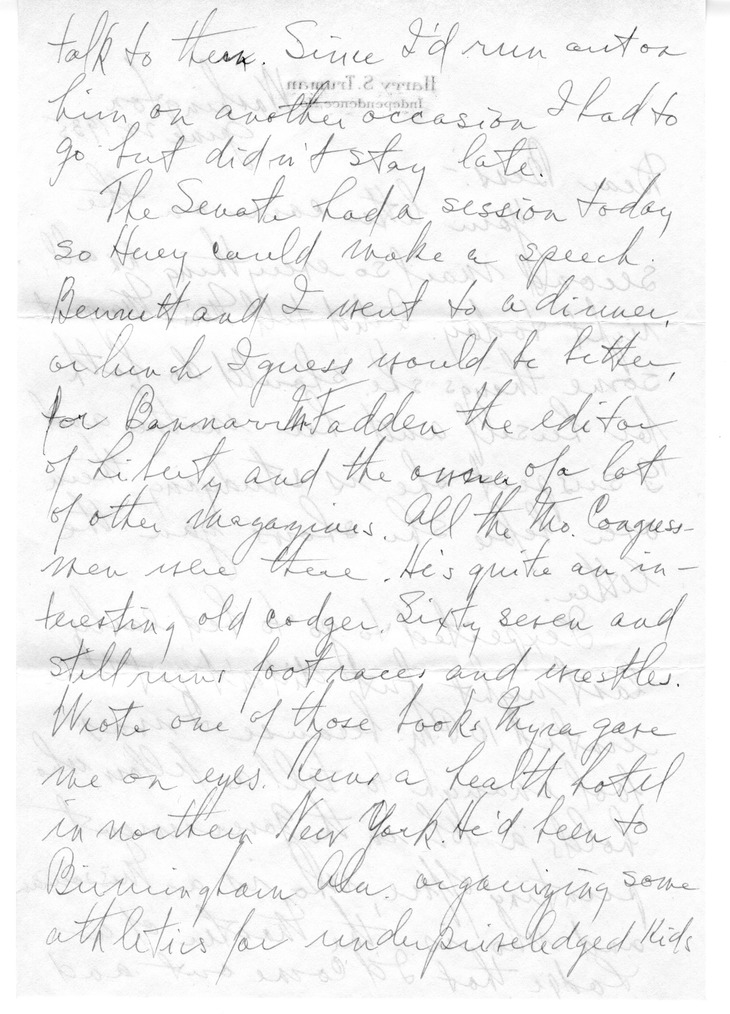 talk to them. Since I'd run out on
Harry S. Truman
Independence
him on another occasion I had to
go but didn't stay late.
The Senate had a session today
so Huey could make a speech.
Bennett and I went to a dinner,
or lunch I guess would be better,
for Bannarr McFadden the editor
of Liberty and the owner of a lot
of other magazines. All the Mo. Congress-
men were there. He's quite an in-
teresting old codger. Sixty seven and
still runs foot races and wrestles.
Wrote one of those books Myra gave
me on eyes. Runs a health hotel
in northern New York. He'd been to
Birmingham Ala. organizing some
athletics for underpriveledged kids